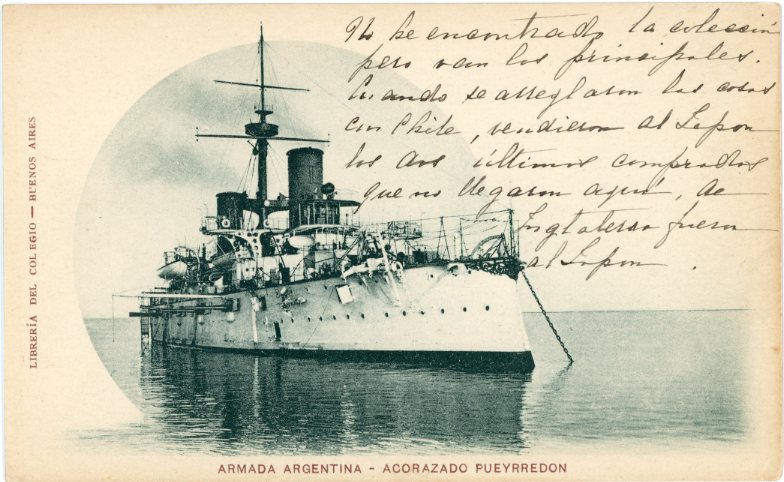 No he encontrado la colección
pero van los principales.
Cuando se arreglaron las cosas
con Chile, vendieron al Japon
los dos últimos comprados
que no llegaron aquí, de
Inglaterra fueron
al Japon.
LIBRERÍA DEL COLEGIO — BUENOS AIRES
ARMADA ARGENTINA - ACORAZADO PUEYRREDON